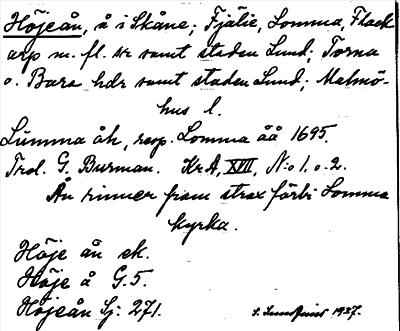 Höjeån, å i Skåne; Fjälie, Lomma, Flack
arp m. fl. snr samt staden Lund; Torna
o. Bara hdr samt staden Lund; Malmö-
hus l.
Lumma åh, resp. Lomma åå 1695.
Trol. G. Burman. Kr A, XVII, N:o 1. o. 2.
Ån rinner fram strax förbi Lomma
kyrka.
Höje ån ek.
Höje å G. 5.
Höjeån Lj: 271.
1937.